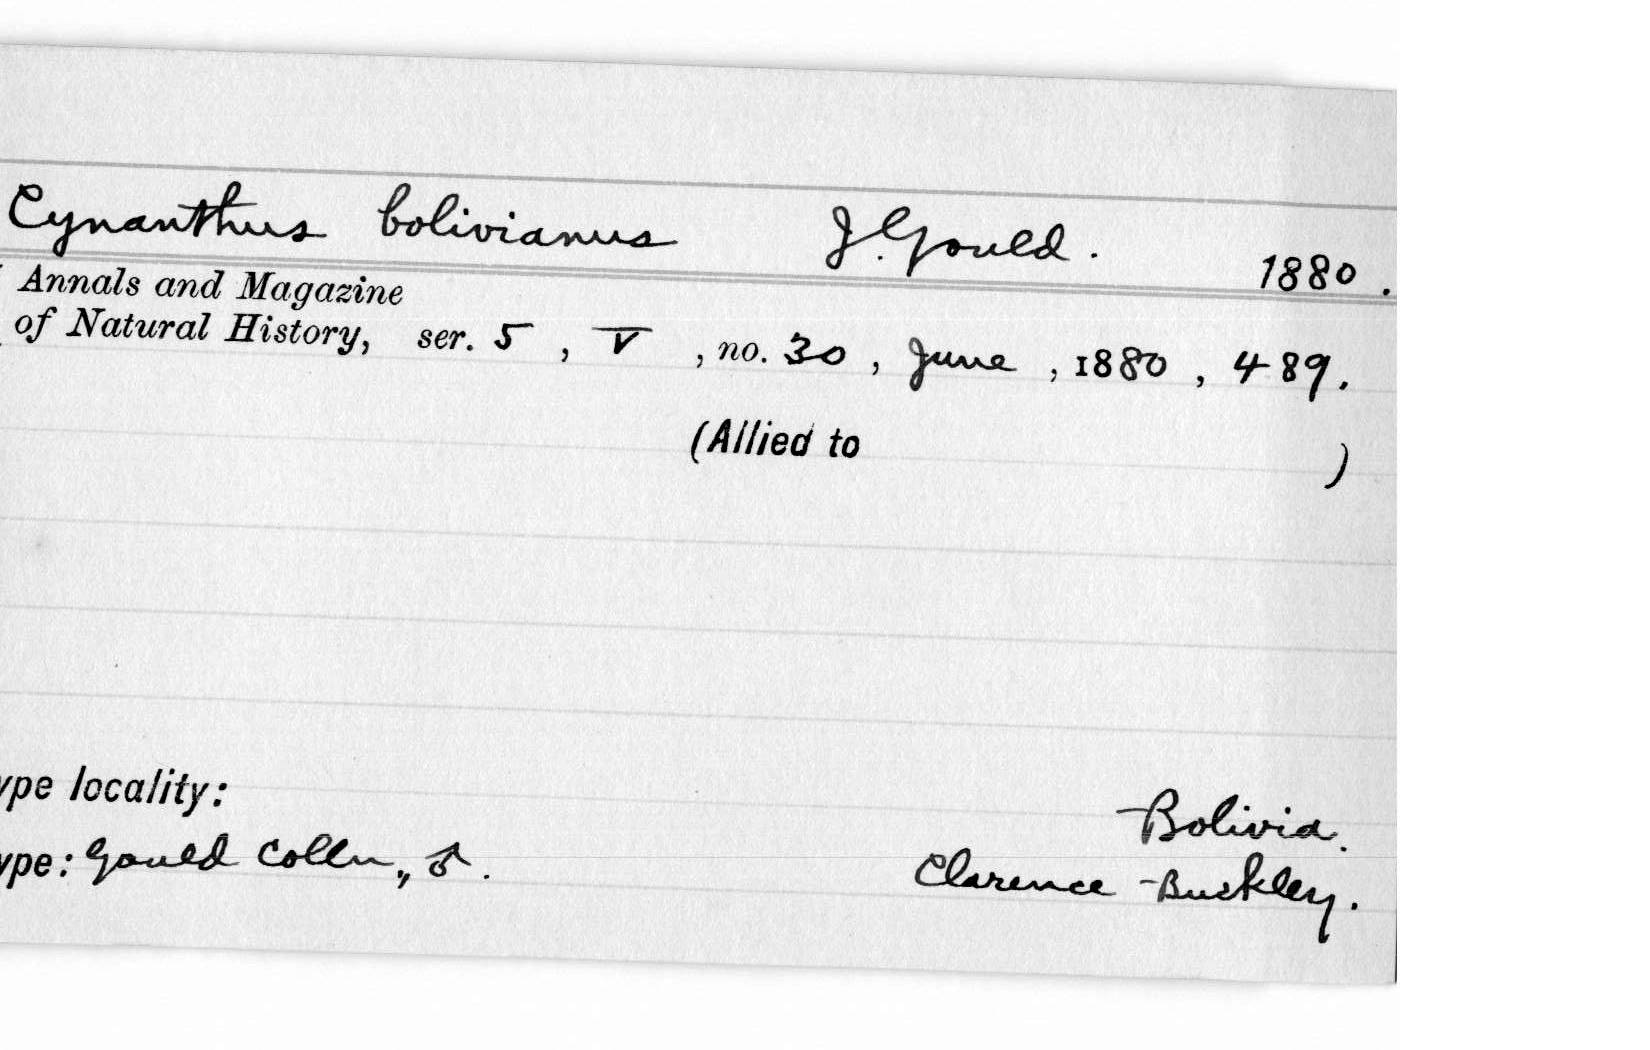 Cynanthus bolivianus J. Gould. 1880.
Annals and Magazine
of Natural History, ser. 5, V, no. 30, June, 1880, 489.
(Allied to )
ype locality: Bolivia.
ype: Gould Colln., ♂. Clarence Buckley.